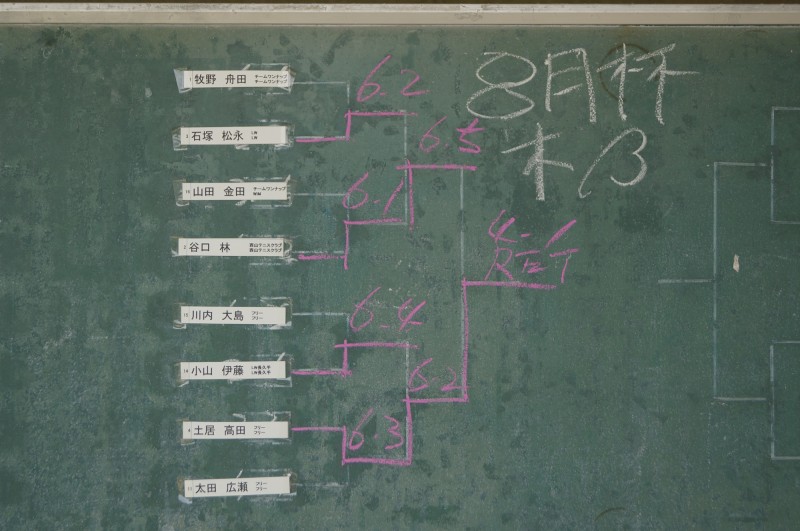 8月杯
本β
牧野 舟田 チームワンナップ
チームワンナップ
6.2
石塚 松永 LW
LW
6.5
山田 金田 チームワンナップ
6.1
谷口 林
4-1
RET
川内 大島 フリー
フリー
6.4
小山 伊藤
6.2
土居 高田 フリー
フリー
6.3
太田 広瀬 フリー
フリー